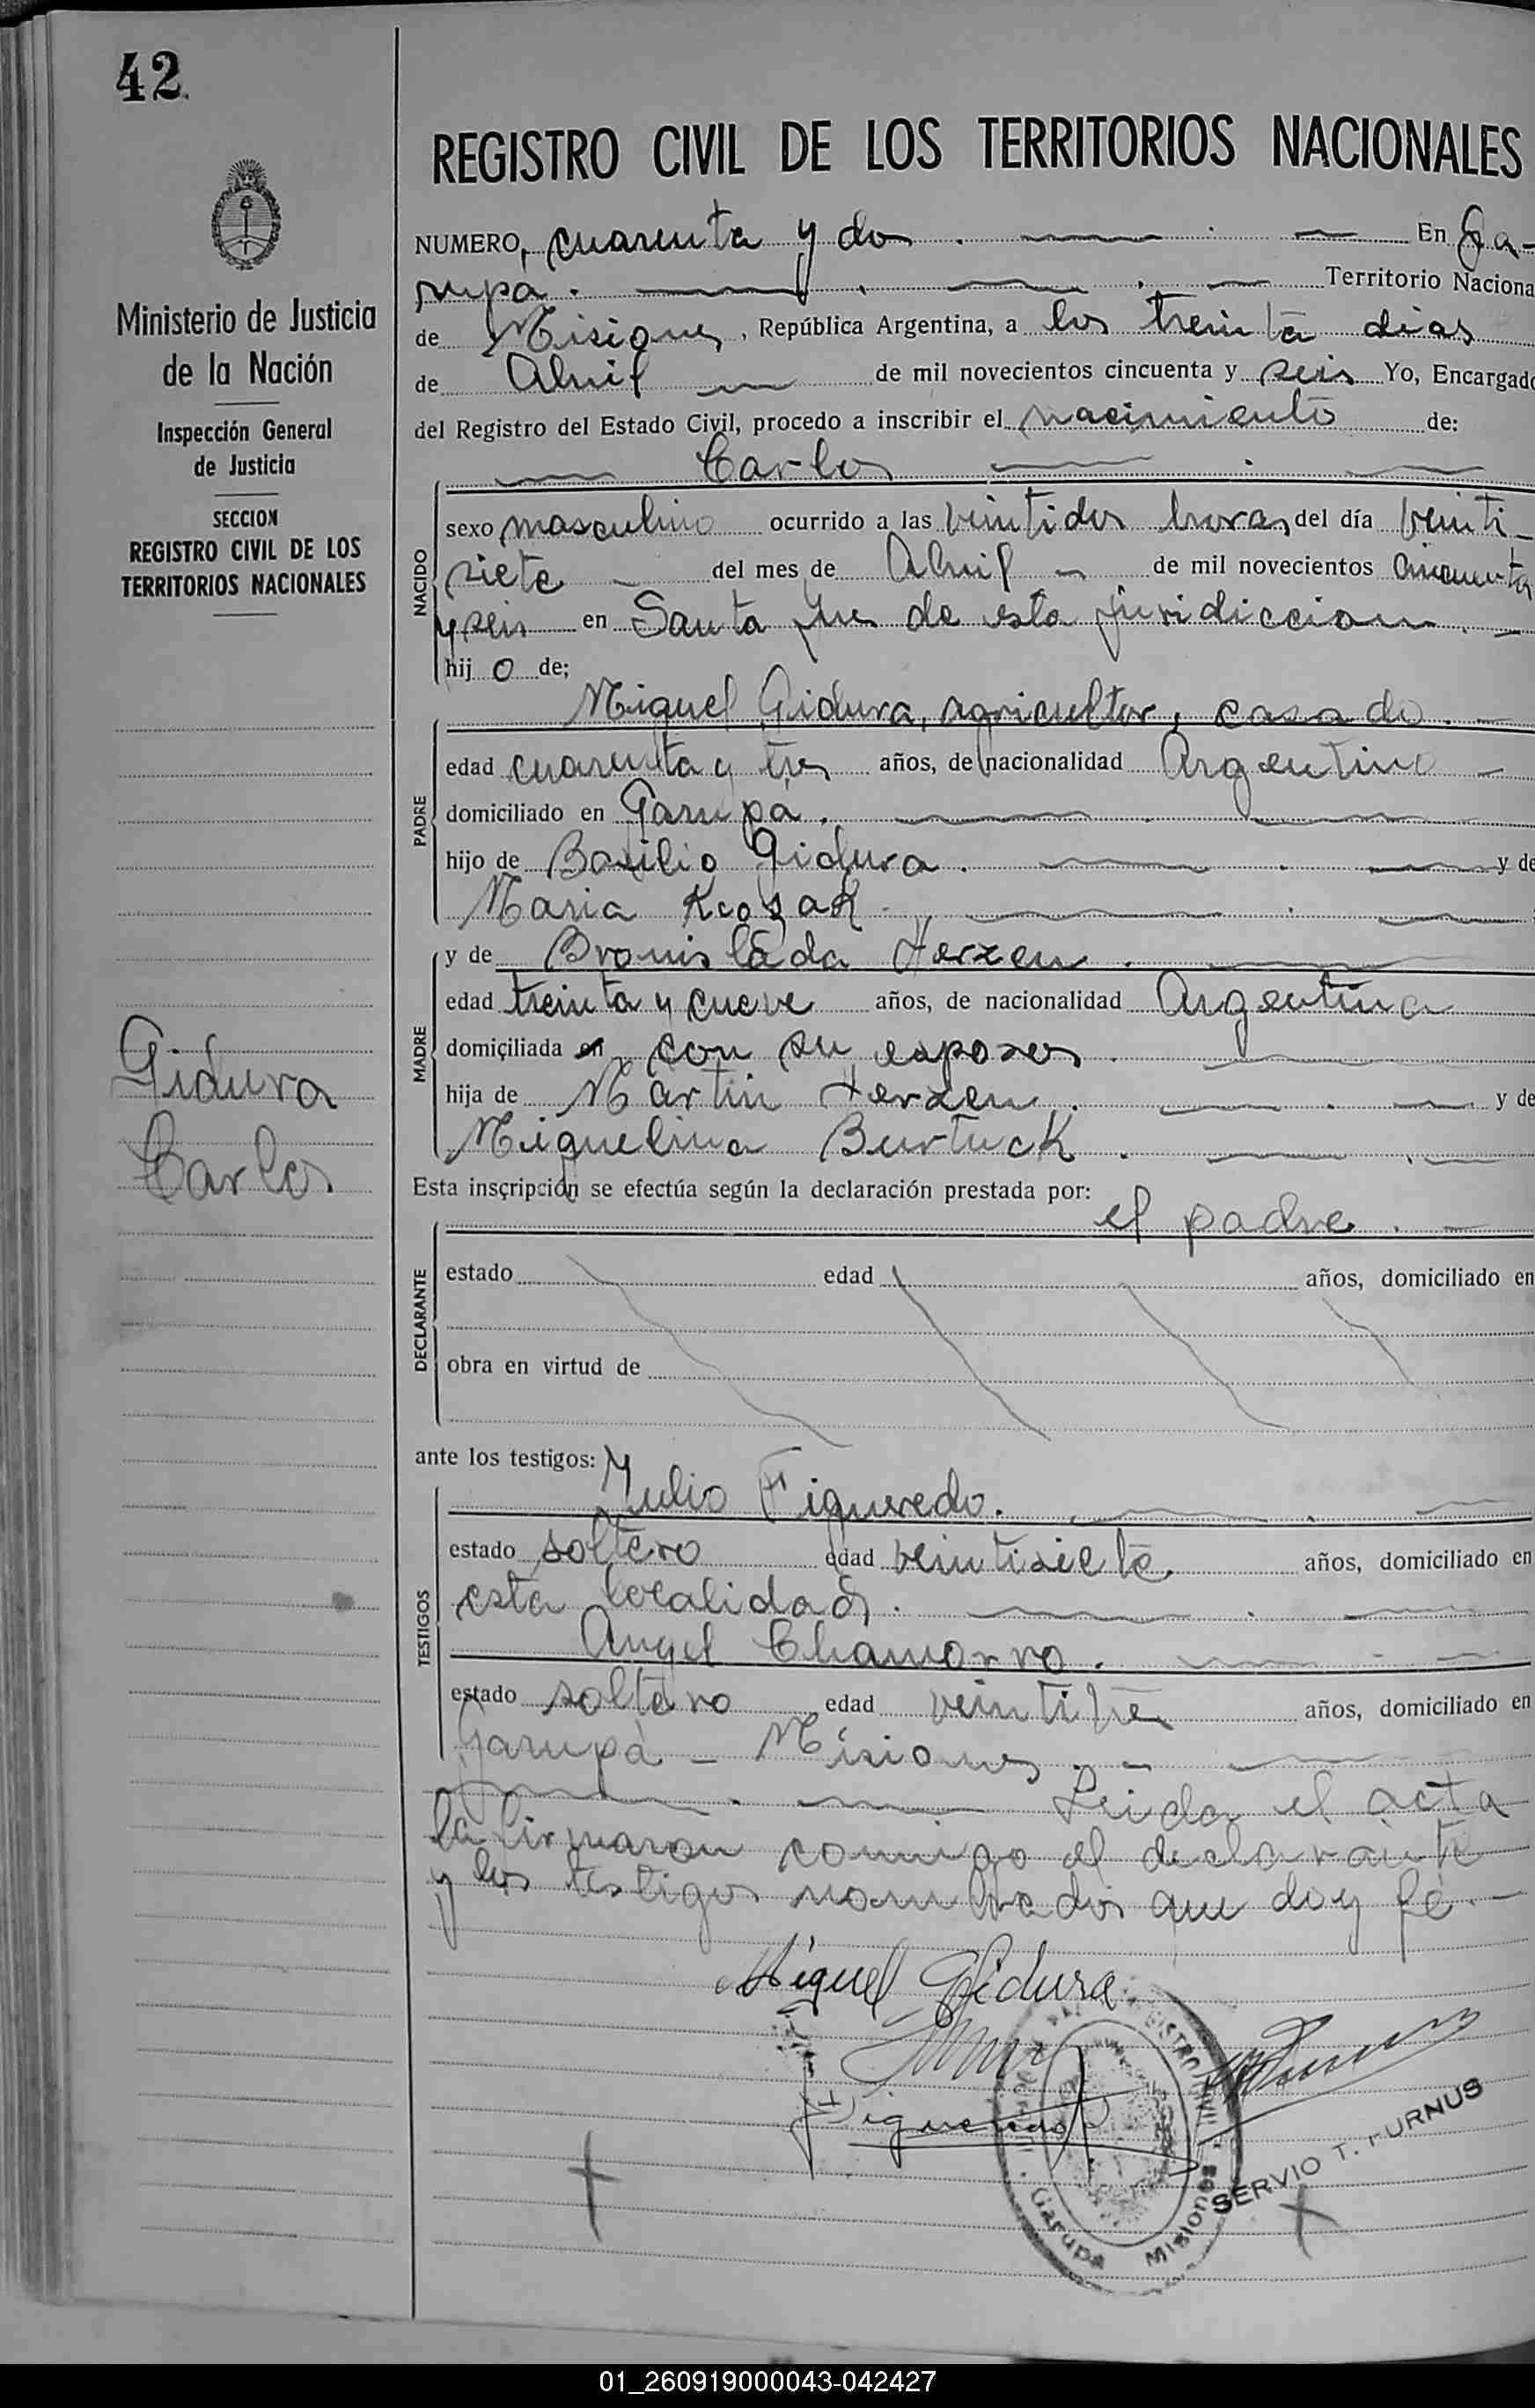 42
REGISTRO CIVIL DE LOS TERRITORIOS NACIONALES
Ministerio de Justicia
de la Nación
Inspección General
de Justicia
SECCION
REGISTRO CIVIL DE LOS
TERRITORIOS NACIONALES
Gidura
Carlos
NUMERO, cuarenta y dos . En Ga-
rupá . Territorio Naciona
de Misiones, República Argentina, a los treinta dias
de Abril de mil novecientos cincuenta y seis Yo, Encargado
del Registro del Estado Civil, procedo a inscribir el nacimiento de:
Carlos
NACIDO
sexo masculino ocurrido a las veintidos horas del día veinti-
siete del mes de Abril de mil novecientos cincuenta
y seis en Santa Ines de esta juridiccion.
hij o de;
Miguel Gidura, agricultor, casado.
PADRE
edad cuarenta y tres años, de nacionalidad Argentino
domiciliado en Garupá.
hijo de Basilio Gidura. y de
Maria
y de Bronislada Herzen.
MADRE
edad treinta y cueve años, de nacionalidad Argentina
domiciliada en con su esposos.
hija de Martin Herzen. y de
Miguelina Burtuck.
Esta inscripción se efectúa según la declaración prestada por:
el padre.
DECLARANTE
estado edad años, domiciliado en
obra en virtud de
ante los testigos:
Julio Figueredo.
TESTIGOS
estado soltero edad veintisiete años, domiciliado en
esta localidad.
Angel Chamorro.
estado soltero edad veintitres años, domiciliado en
Garupá - Misiones
Leida el acta
la firmaron comigo el declarante
y los testigos nombrados que doy fé.-
Miguel Gidura
Figueredo
Garupá Misiones
SERVIO T. FURNUS
01_260919000043-042427